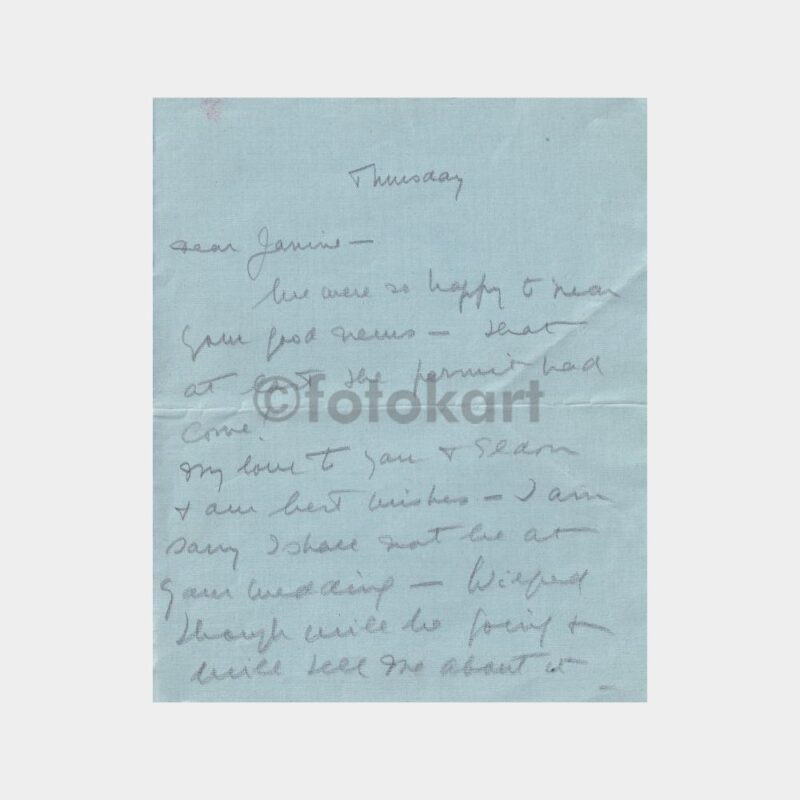 Thursday
Dear Janine —
We were so happy to hear
your good news — that
at last the permit had
©fotokart
come!
My love to you &
& our best wishes — I am
sorry I shall not be at
your wedding — Wilfred
though will be going &
will tell me about it